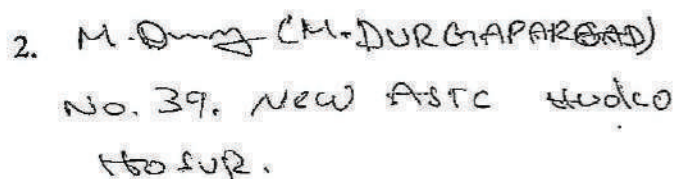 2. M. Durg (M.DURGAPARSAD)
No. 39. New ASTC Hudco
Hosur.